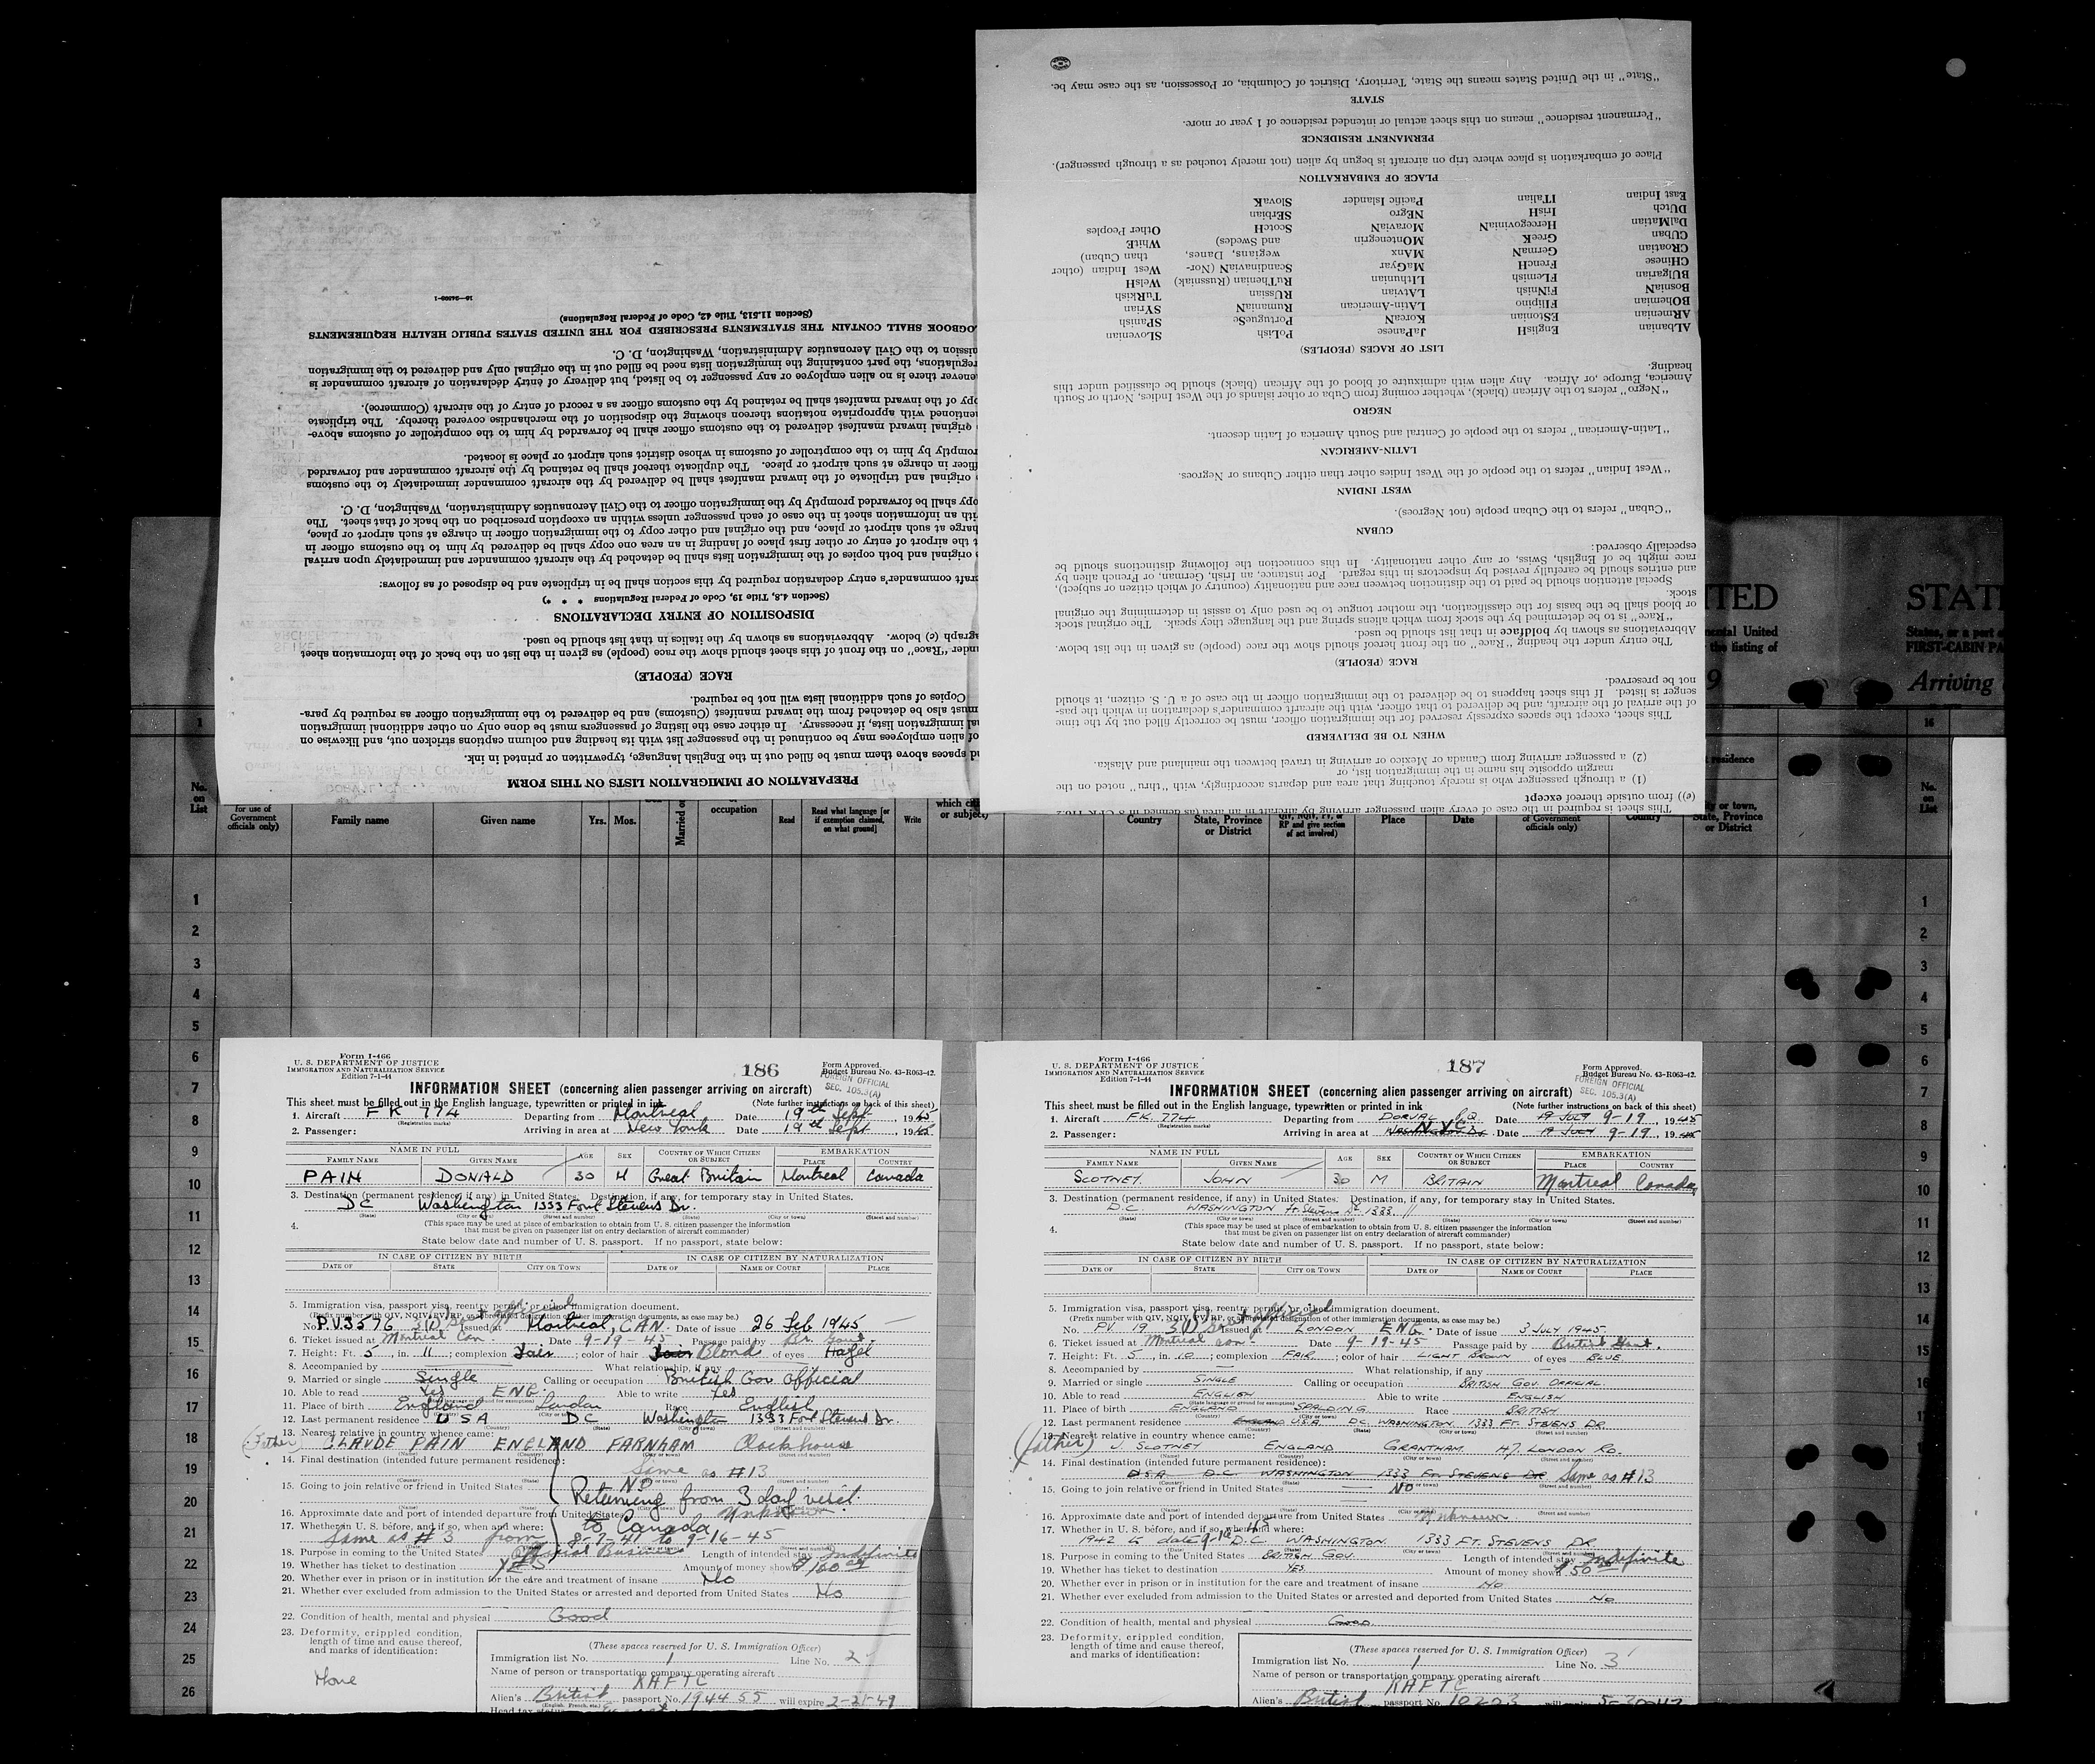 "State" in the United States means the State, Territory, District of Columbia, or Possession, as the case may be.
STATE
"Permanent residence" means on this sheet actual or intended residence of 1 year or more.
PERMANENT RESIDENCE
Place of embarkation is place where trip on aircraft is begun by alien (not merely touched as a through passenger).
PLACE OF EMBARKATION
East Indian ITalian Pacific Islander SlovaK
DUtch IrisH NEgro SErbian
DalMatian HercegoviniaN MoraviaN ScotcH Other Peoples
CUban GreeK MOntenegrin and Swedes) WhitE
CRoatian GermaN MAnx wegians, Danes, than Cuban)
CHinese FrencH MaGyar ScandinaviaN (Nor- West Indian (other
BUlgarian FLemish LIthunian RuThenian (Russniak) WelsH
BosniaN FiNnish LAtvian RUssian TuRKish
BOhemian FIlipino LAtin-American RumaniaN SYrian
ARmenian EStonian KoreaN PortugueSe SPanish
ALbanian EnglisH JaPanese PoLish SLovenian
LIST OF RACES (PEOPLES)
heading.
America, Europe, or Africa. Any alien with admixture of blood of the African (black) should be classified under this
"Negro" refers to the African (black), whether coming from Cuba or other islands of the West Indies, North or South
NEGRO
"Latin-American" refers to the people of Central and South America of Latin descent.
LATIN-AMERICAN
"West Indian" refers to the people of the West Indies other than either Cubans or Negroes.
WEST INDIAN
"Cuban" refers to the Cuban people (not Negroes).
CUBAN
especially observed:
race might be of English, Swiss, or any other nationality. In this connection the following distinctions should be
and entries should be carefully revised by inspectors in this regard. For instance, an Irish, German, or French alien by
Special attention should be paid to the distinction between race and nationality (country of which citizen or subject),
stock.
or blood shall be the basis for the classification, the mother tongue to be used only to assist in determining the original
"Race" is to be determined by the stock from which aliens spring and the language they speak. The original stock
Abbreviations as shown by boldface in that list should be used.
The entry under the heading "Race" on the front hereof should show the race (people) as given in the list below.
RACE (PEOPLE)
not be preserved.
senger is listed. If this sheet happens to be delivered to the immigration officer in the case of a U. S. citizen, it should
of the arrival of the aircraft, and be delivered to that officer, with the aircraft commander's declaration in which the pas-
This sheet, except the spaces expressly reserved for the immigration officer, must be correctly filled out by the time
WHEN TO BE DELIVERED
(2) a passenger arriving from Canada or Mexico or arriving in travel between the mainland and Alaska.
margin opposite his name in the immigration list, or
(1) a through passenger who is merely touching that area and departs accordingly, with "thru" noted on the
(e)) from outside thereof except
This sheet is required in the case of every alien passenger arriving by aircraft in an area (as defined in
16—24509-1
(Section 11.513, Title 42, Code of Federal Regulations)
LOGBOOK SHALL CONTAIN THE STATEMENTS PRESCRIBED FOR THE UNITED STATES PUBLIC HEALTH REQUIREMENTS
mission to the Civil Aeronautics Administration, Washington, D. C.
regulations, the part containing the immigration lists need be filled out in the original only and delivered to the immigration
never there is no alien employee or any passenger to be listed, but delivery of entry declaration of aircraft commander is
opy of the inward manifest shall be retained by the customs officer as a record of entry of the aircraft (Commerce).
entioned with appropriate notations thereon showing the disposition of the merchandise covered thereby. The triplicate
original inward manifest delivered to the customs officer shall be forwarded by him to the comptroller of customs above-
romptly by him to the comptroller of customs in whose district such airport or place is located.
officer in charge at such airport or place. The duplicate thereof shall be retained by the aircraft commander and forwarded
original and triplicate of the inward manifest shall be delivered by the aircraft commander immediately to the customs
opy shall be forwarded promptly by the immigration officer to the Civil Aeronautics Administration, Washington, D. C.
ith an information sheet in the case of each passenger unless within an exception prescribed on the back of that sheet. The
harge at such airport or place, and the original and other copy to the immigration officer in charge at such airport or place,
t the airport of entry or other first place of landing in an area one copy shall be delivered by him to the customs officer in
original and both copies of the immigration lists shall be detached by the aircraft commander and immediately upon arrival
craft commander's entry declaration required by this section shall be in triplicate and be disposed of as follows:
(Section 4.8, Title 19, Code of Federal Regulations * * *)
DISPOSITION OF ENTRY DECLARATIONS
agraph (c) below. Abbreviations as shown by the italics in that list should be used.
under "Race" on the front of this sheet should show the race (people) as given in the list on the back of the information sheet
RACE (PEOPLE)
Copies of such additional lists will not be required.
must also be detached from the inward manifest (Customs) and be delivered to the immigration officer as required by para-
al immigration lists, if necessary. In either case the listing of passengers must be done only on other additional immigration
of alien employees may be continued in the passenger list with its heading and column captions stricken out, and likewise on
d spaces above them must be filled out in the English language, typewritten or printed in ink.
PREPARATION OF IMMIGRATION LISTS ON THIS FORM
ITED STAT
nental United States, or a port
the listing of FIRST-CABIN PA
9 Arriving
1 16
residence
No. on List for use of Government officials only) Family name Given name Yrs. Mos. Married or occupation Read Read what language [or if exemption claimed, on what ground] Write or subject) Country State, Province or District QIV, NQIV, PV, or RP and give section of act involved) Place Date of Government officials only) Country y or town, State, Province or District No. on List
1 1
2 2
3 3
4 4
5 5
6 6
7 7
8 8
9 9
10 10
11 11
12 12
13 13
14 14
15 15
16 16
17 17
18 18
19 19
20 20
21 21
22 22
23 23
24 24
25 25
26 26
Form I-466
U. S. DEPARTMENT OF JUSTICE
IMMIGRATION AND NATURALIZATION SERVICE
Edition 7-1-44
186
Form Approved.
Budget Bureau No. 43-R063-42.
FOREIGN OFFICIAL
SEC. 105.3(A)
INFORMATION SHEET (concerning alien passenger arriving on aircraft)
This sheet must be filled out in the English language, typewritten or printed in ink (Note further instructions on back of this sheet)
1. Aircraft FK 774 Departing from Montreal Date 19th Sept, 1945
(Registration marks)
2. Passenger: Arriving in area at New York Date 19th Sept, 1945
NAME IN FULL AGE SEX COUNTRY OF WHICH CITIZEN OR SUBJECT EMBARKATION
FAMILY NAME GIVEN NAME PLACE COUNTRY
PAIN DONALD 30 M Great Britain Montreal Canada
3. Destination (permanent residence, if any) in United States. Destination, if any, for temporary stay in United States.
DC Washington 1333 Fort Stevens Dr.
(State) (City or town) (Street and number) (State) (City or town) (Street and number)
4. (This space may be used at place of embarkation to obtain from U. S. citizen passenger the information
that must be given on passenger list on entry declaration of aircraft commander)
State below date and number of U. S. passport. If no passport, state below:
IN CASE OF CITIZEN BY BIRTH IN CASE OF CITIZEN BY NATURALIZATION
DATE OF STATE CITY OR TOWN DATE OF NAME OF COURT PLACE
5. Immigration visa, passport visa, reentry permit, or other immigration document.
(Prefix number with QIV, NQIV, PV, RP, or abbreviated designation of other immigration documents, as case may be.)
No. P.V.3576 3(1) Govt official Issued at Montreal, CAN. Date of issue 26 Feb 1945
6. Ticket issued at Montreal Can. Date 9-19-45 Passage paid by Br. Govt.
7. Height: Ft. 5, in. 11; complexion Fair; color of hair Fair Blond of eyes Hazel
8. Accompanied by What relationship, if any
9. Married or single Single Calling or occupation British Gov Official
10. Able to read Yes ENG. Able to write Yes
11. Place of birth England London Race English
12. Last permanent residence USA DC Washington 1333 Fort Stevens Dr.
13. Nearest relative in country whence came:
(Father) CLAUDE PAIN ENGLAND FARNHAM Clockhouse
14. Final destination (intended future permanent residence): Same as #13
15. Going to join relative or friend in United States NO
Returning from 3 day visit to Canada
16. Approximate date and port of intended departure from United States Unknown
17. Whether in U. S. before, and if so, when and where:
Same as #3 from 8-7-41 to 9-16-45
18. Purpose in coming to the United States Official Business Length of intended stay Indefinite
19. Whether has ticket to destination YES Amount of money shown $160.00
20. Whether ever in prison or in institution for the care and treatment of insane No
21. Whether ever excluded from admission to the United States or arrested and deported from United States No
22. Condition of health, mental and physical Good
23. Deformity, crippled condition, length of time and cause thereof, and marks of identification:
None
(These spaces reserved for U. S. Immigration Officer)
Immigration list No. 1 Line No. 2
Name of person or transportation company operating aircraft
RAFTC
Alien's British passport No. 194455 will expire 2-21-49
(English, French, etc.)
Head tax status
Form I-466
U. S. DEPARTMENT OF JUSTICE
IMMIGRATION AND NATURALIZATION SERVICE
Edition 7-1-44
187
Form Approved.
Budget Bureau No. 43-R063-42.
FOREIGN OFFICIAL
SEC. 105.3(A)
INFORMATION SHEET (concerning alien passenger arriving on aircraft)
This sheet must be filled out in the English language, typewritten or printed in ink (Note further instructions on back of this sheet)
1. Aircraft FK. 774 Departing from DORVAL P.Q. Date 19 JULY 9-19, 1945
(Registration marks)
2. Passenger: Arriving in area at WASHINGTON DC N.Y.C. Date 19 JULY 9-19, 1945
NAME IN FULL AGE SEX COUNTRY OF WHICH CITIZEN OR SUBJECT EMBARKATION
FAMILY NAME GIVEN NAME PLACE COUNTRY
SCOTNEY JOHN 30 M BRITAIN Montreal Canada
3. Destination (permanent residence, if any) in United States. Destination, if any, for temporary stay in United States.
D.C. WASHINGTON Ft. Stevens Dr. 1333
(State) (City or town) (Street and number) (State) (City or town) (Street and number)
4. (This space may be used at place of embarkation to obtain from U. S. citizen passenger the information
that must be given on passenger list on entry declaration of aircraft commander)
State below date and number of U. S. passport. If no passport, state below:
IN CASE OF CITIZEN BY BIRTH IN CASE OF CITIZEN BY NATURALIZATION
DATE OF STATE CITY OR TOWN DATE OF NAME OF COURT PLACE
5. Immigration visa, passport visa, reentry permit, or other immigration document.
(Prefix number with QIV, NQIV, PV, RP, or abbreviated designation of other immigration documents, as case may be.)
No. PV. 19 3(1) Govt official Issued at LONDON ENG. Date of issue 3 JULY 1945
6. Ticket issued at Montreal Can. Date 9-19-45 Passage paid by British Govt.
7. Height: Ft. 5, in. 10; complexion FAIR; color of hair LIGHT BROWN of eyes BLUE
8. Accompanied by What relationship, if any
9. Married or single SINGLE Calling or occupation BRITISH GOV. OFFICIAL
10. Able to read ENGLISH Able to write ENGLISH
11. Place of birth ENGLAND SPALDING Race BRITISH
12. Last permanent residence ENGLAND U.S.A DC. WASHINGTON 1333 FT. STEVENS DR
13. Nearest relative in country whence came:
(father) J. SCOTNEY ENGLAND GRANTHAM 47, LONDON RD.
14. Final destination (intended future permanent residence):
U.S.A. D.C. WASHINGTON 1333 Ft. STEVENS DR Same as #13
15. Going to join relative or friend in United States NO
16. Approximate date and port of intended departure from United States Unknown
17. Whether in U. S. before, and if so, when and where:
1942 to date D.C. WASHINGTON 1333 FT. STEVENS DR
18. Purpose in coming to the United States BRITISH GOV. Length of intended stay Indefinite
19. Whether has ticket to destination YES Amount of money shown $50
20. Whether ever in prison or in institution for the care and treatment of insane NO
21. Whether ever excluded from admission to the United States or arrested and deported from United States No
22. Condition of health, mental and physical GOOD
23. Deformity, crippled condition, length of time and cause thereof, and marks of identification:
(These spaces reserved for U. S. Immigration Officer)
Immigration list No. 1 Line No. 3
Name of person or transportation company operating aircraft
RAFTC
Alien's British passport No. 10203